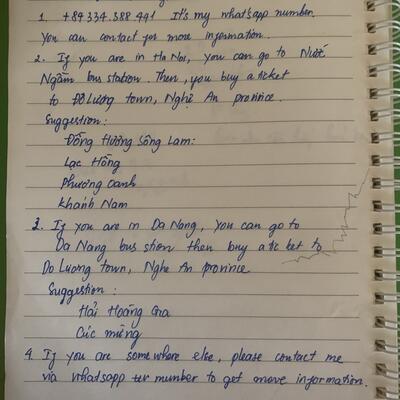 1. +84 334 388 491 It's my whatsapp number.
You can contact for more information.
2. If you are in Ha Noi, you can go to Nước
Ngầm bus station. Then, you buy a ticket
to Đô Lương town, Nghệ An province.
Suggestion:
Đồng Hương Sông Lam:
Lạc Hồng
Phương Oanh
Khánh Nam
3. If you are in Da Nang, you can go to
Da Nang bus stion then buy a tic ket to
Do Luong town, Nghe An province
Suggestion:
Hải Hoàng Gia
Cúc mừng
4. If you are somewhere else, please contact me
via whatsapp number to get more information.